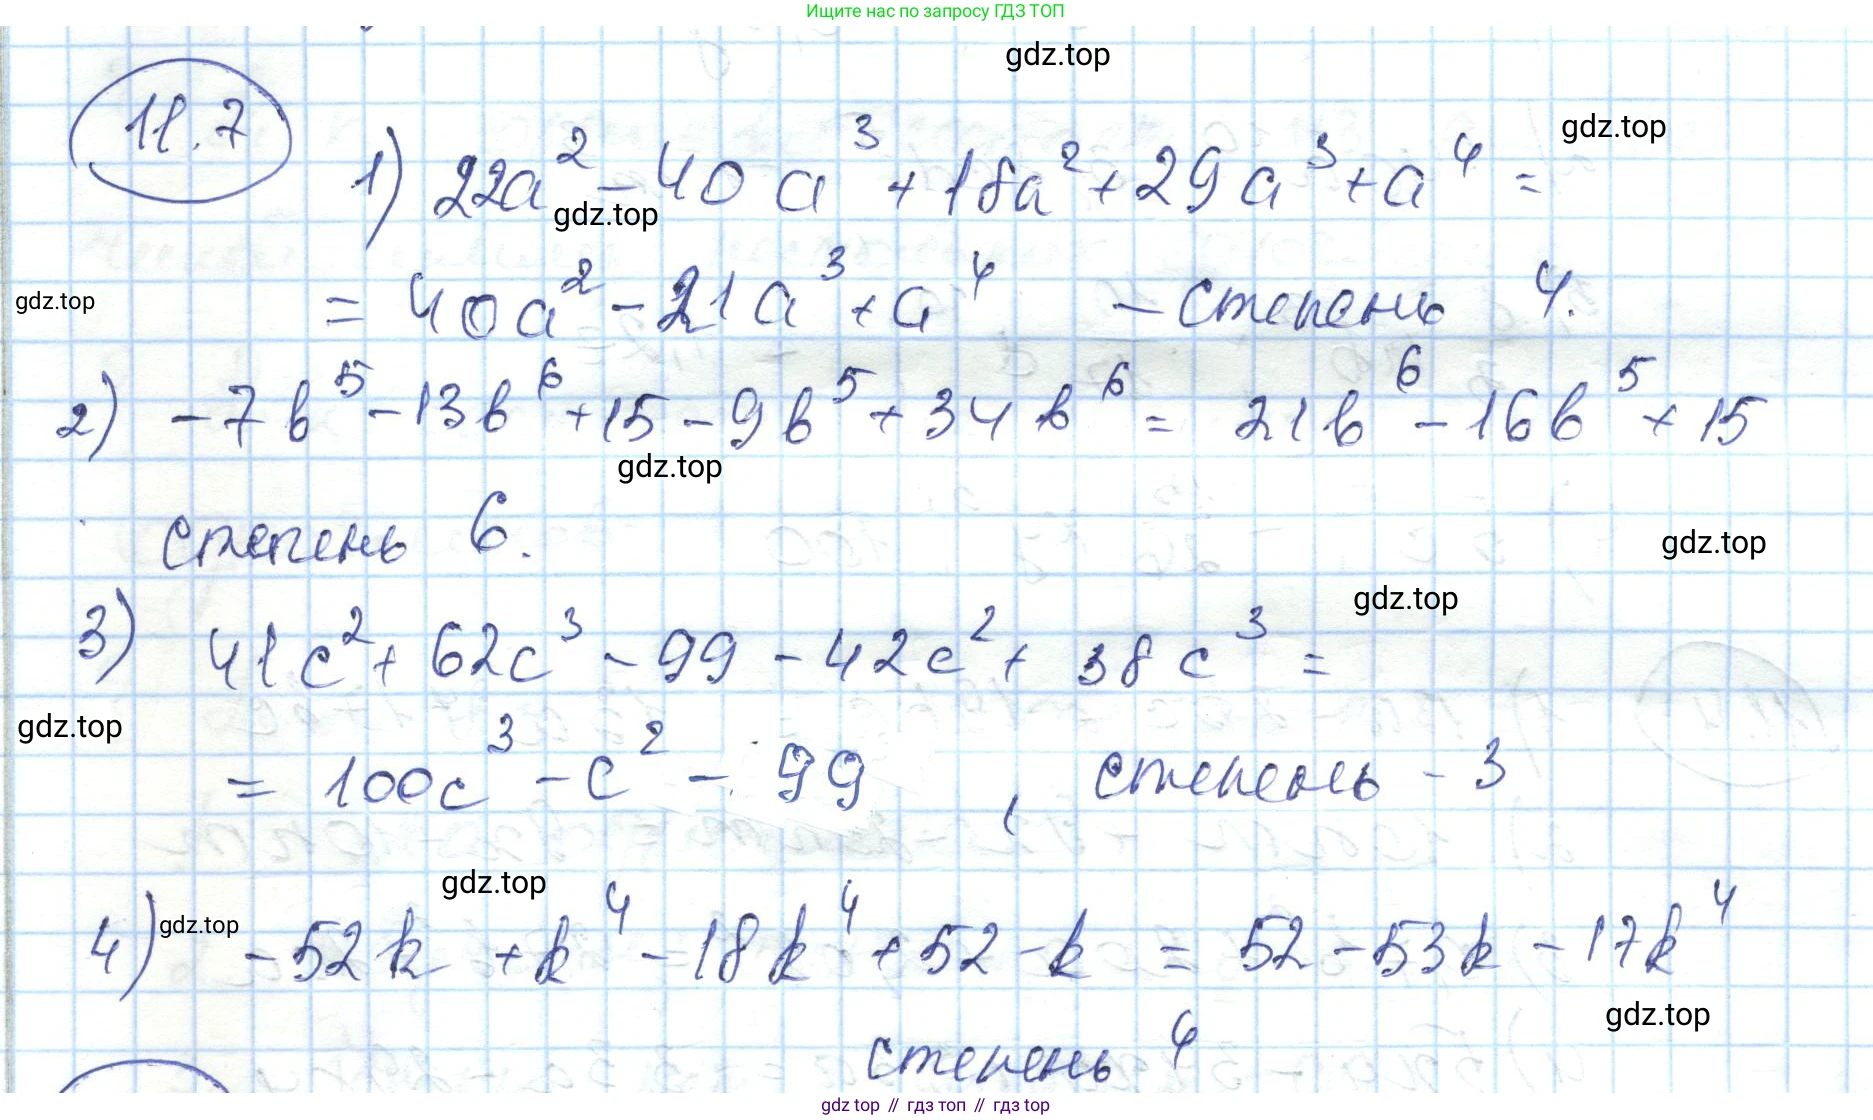 Ищите нас по запросу ГДЗ ТОП
gdz.top
11.7
gdz.top
1) 22a² - 40a³ + 18a² + 29a³ + a⁴ =
gdz.top
gdz.top
= 40a² - 21a³ + a⁴ - степень 4.
2) -7b⁵ - 13b⁶ + 15 - 9b⁵ + 34b⁶ = 21b⁶ - 16b⁵ + 15
gdz.top
степень 6.
gdz.top
gdz.top
3) 41c² + 62c³ - 99 - 42c² + 38c³ =
gdz.top
= 100c³ - c² - 99 , степень - 3
gdz.top
gdz.top
4) -52k + k⁴ - 18k⁴ + 52 - k = 52 - 53k - 17k⁴
gdz.top
степень 4
gdz top // гдз топ // гдз top